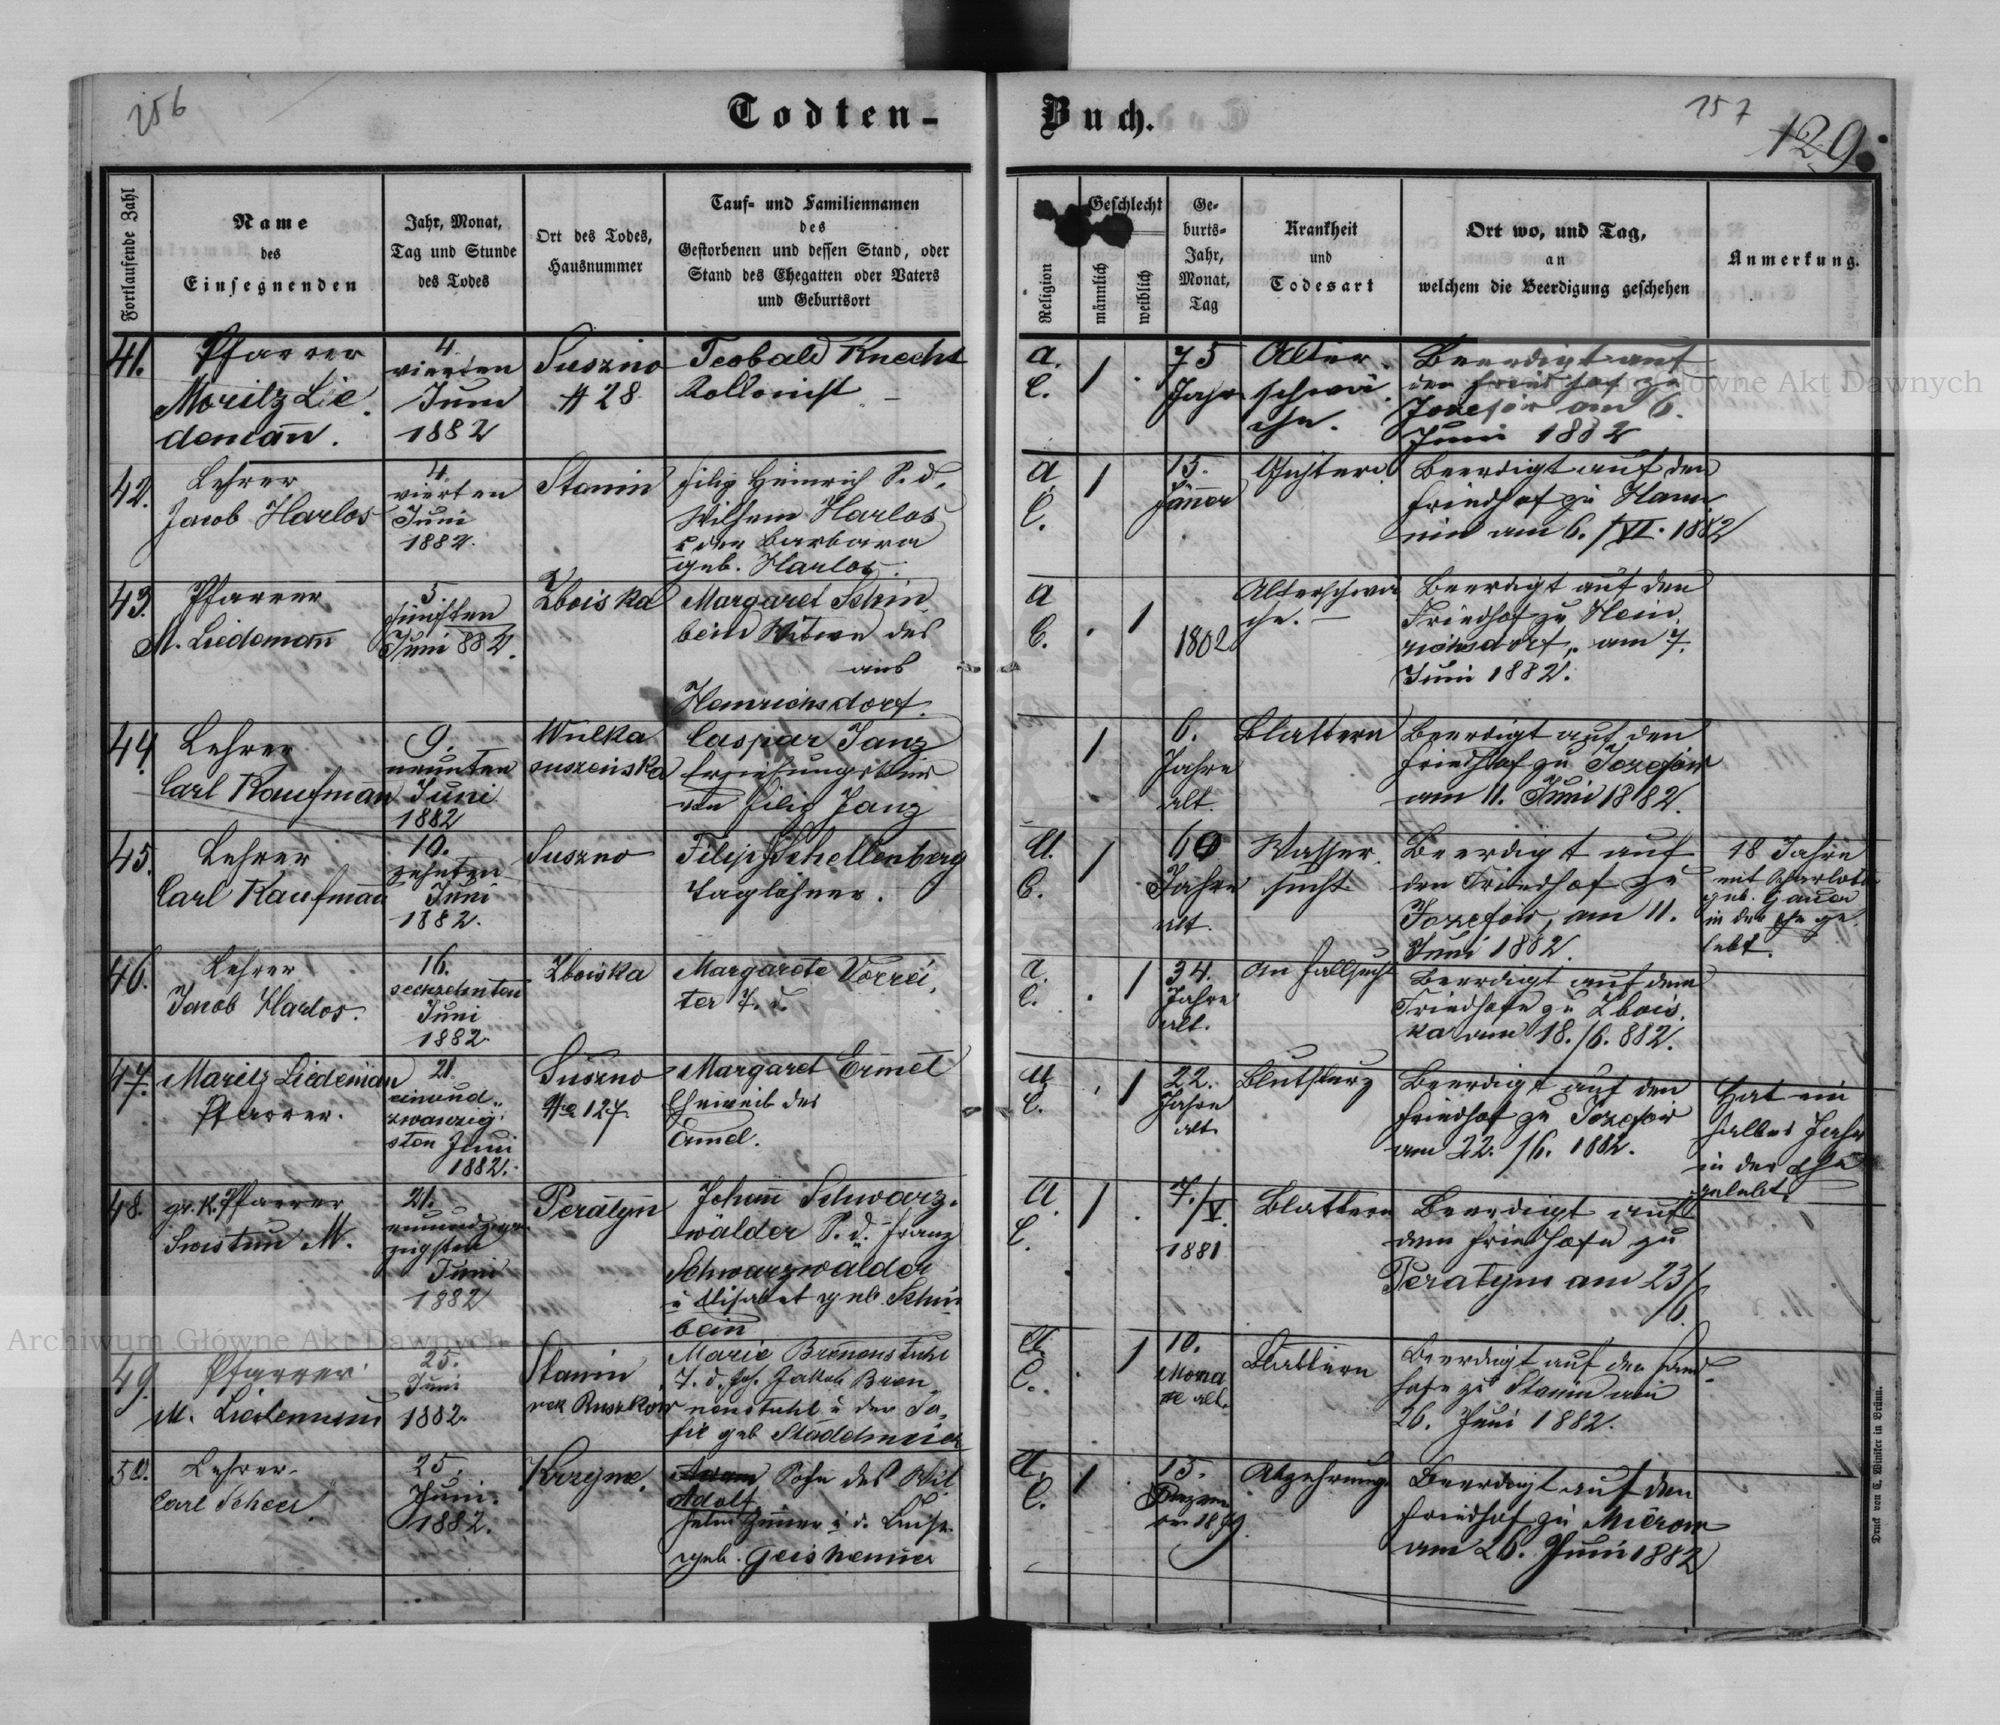 256
Todten-
Buch.
157
129.
Fortlaufende Zahl
Name
des
Einsegnenden
Jahr, Monat,
Tag und Stunde
des Todes
Ort des Todes,
Hausnummer
Tauf= und Familiennamen
des
Gestorbenen und dessen Stand, oder
Stand des Ehegatten oder Vaters
und Geburtsort
Religion
Geschlecht
männlich
weiblich
Ge=
burts=
Jahr,
Monat,
Tag
Krankheit
und
Todesart
Ort wo, und Tag,
an
welchem die Beerdigung geschehen
Anmerkung.
41.
Pfarrer
Moritz Lie
demann.
4.
vierten
Juni
1882
Suszno
# 28
Teobald Knecht
Kollonist
A.
C.
1
75
Jahr
Alter
schwä
che.
Beerdigt auf
den Friedhof zu
Jozefów am 6.
Juni 1882
42.
Lehrer
Jacob Harlos
4.
vierten
Juni
1882.
Stanin
Filip Heinrich S. d.
Wilhem Harlos
u der Barbara
geb. Harlos.
A
C.
1
15.
Jänner
Beerdigt auf den
Friedhof zu
am 6./VI. 1882
43.
Pfarrer
M. Liedemann
5.
fünften
Juni 882.
Zboiska
Margaret Schin
bein Witwe des
aus
Heinrichsdorf.
A
C.
1
1802
Alterschwä
che.
Beerdigt auf den
Friedhof zu Hein
richsdorf, am 7.
Juni 1882.
44.
Lehrer
Carl Kaufmann
9.
neunten
Juni
1882
Wulka
suszenska
Caspar Janz
Erziehungskind
von Filip Janz
1
6.
Jahre
alt.
Blattern
Beerdigt auf den
Friedhof zu Jozefów
am 11. Juni 1882.
45.
Lehrer
Carl Kaufmann
10.
zehnten
Juni
1882.
Suszno
Filip Schellenberg
Taglöhner.
A.
C.
1
60
Jahre
alt.
Wasser
sucht
Beerdigt auf
den Friedhof zu
Jozefów, am 11.
Juni 1882.
18 Jahre
mit Charlota
geb. Gauer
in der Ehe ge
lebt.
46.
Lehrer
Jacob Harlos.
16.
sechzehnten
Juni
1882.
Zboiska
Margarete
ter T. d.
A.
C.
1
34.
Jahre
alt.
an Fallsucht
Beerdigt auf dem
Friedhofe zu Zbois
ka am 18./6. 882.
47.
Moritz Liedeman
Pfarrer.
21.
einund
zwanzig
sten Juni
1882.
Suszno
No 127.
Margaret Ermel
Eheweib des
Ermel.
A.
C.
1
22.
Jahre
alt
Blutsturz
Beerdigt auf den
Friedhof zu Jozefów
am 22./6. 1882.
Hat ein
halbes Jahr
in der Ehe
gelebt.
48.
gr. K. Pfarrer
M.
21.
einundzwan
zigsten
Juni
1882
Peratyn
Johann Schwarz
wälder S. d. Franz
Schwarzwalder
u Elisabet geb. Schin
bein
A.
C.
1
7./V.
1881
Blattern
Beerdigt auf
dem Friedhofe zu
Peratyn am 23/6
49.
Pfarrer
M. Liedemann
25.
Juni
1882.
Stanin
Marie Bronenstuhl
T. d. Jakob Bron
nenstuhl u der So
fie geb
A.
C.
1
10.
Mona
te alt.
Blattern
Beerdigt auf den Fried
hofe zu Stanin am
26. Juni 1882.
50.
Lehrer
Carl Scheer
25.
Juni.
1882.
Krzyme.
Adam Sohn des Wil
Adolf
helm Zimer u d. Luise
geb.
A.
C.
1
15.
Dezem
ber 1879.
Abzehrung
Beerdigt auf den
Friedhof zu Mierow
am 26. Juni 1882
Druck von C. Winiker in Brünn.
Archiwum Główne Akt Dawnych
Główne Akt Dawnych